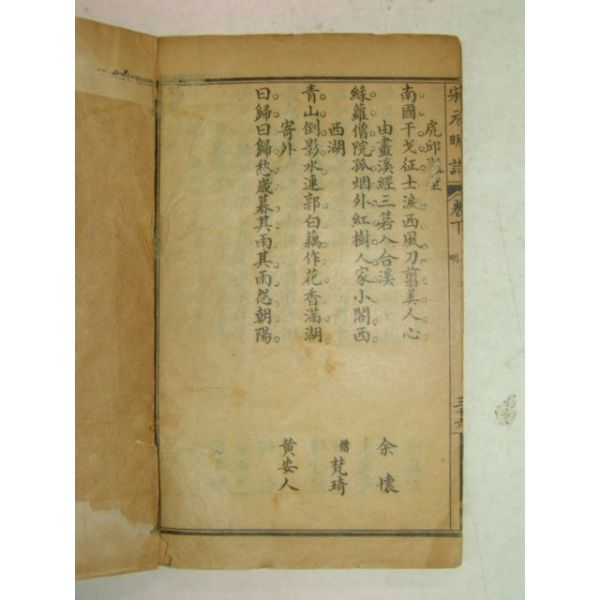 宋元明詩
卷下
明
三十六
虎邱
南國干戈征士淚。西風刀剪美人心。
由畫溪經三箬入合溪
余懷
絲蘿僧院孤烟外。紅樹人家小閣西。
西湖
僧梵琦
青山倒影水連郭。白藕作花香滿湖。
寄外
黃安人
曰歸曰歸愁歲暮。其雨其雨怨朝陽。